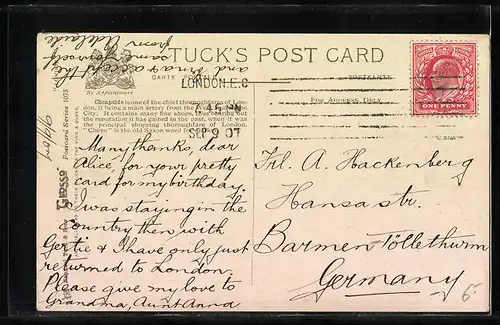 TUCK'S POST CARD
By Appointment
CARTE POSTALE
POSTKARTE
FOR ADDRESS ONLY
LONDON. E.C
SEP 9 07
ONE PENNY
Cheapside is one of the chief thoroughfares of Lon-
don, it being a main artery from the
City. It contains many fine shops, thus bearing out
the reputation it has gained in the past, when it was
the principal shopping thoroughfare of London.
"Chepe" is the old Saxon word for
Postcard Series 1078
Glosso
9/9/07
Many thanks, dear
Alice, for your pretty
card for my birthday.
I was staying in the
country then with
Gertie & I have only just
returned to London.
Please give my love to
Grandma, Aunt Anna
and Irma & accept the
same yourself
from Adelaide
Frl. A. Hackenberg
Hansastr.
Barmen-Töllethurm
Germany
6-